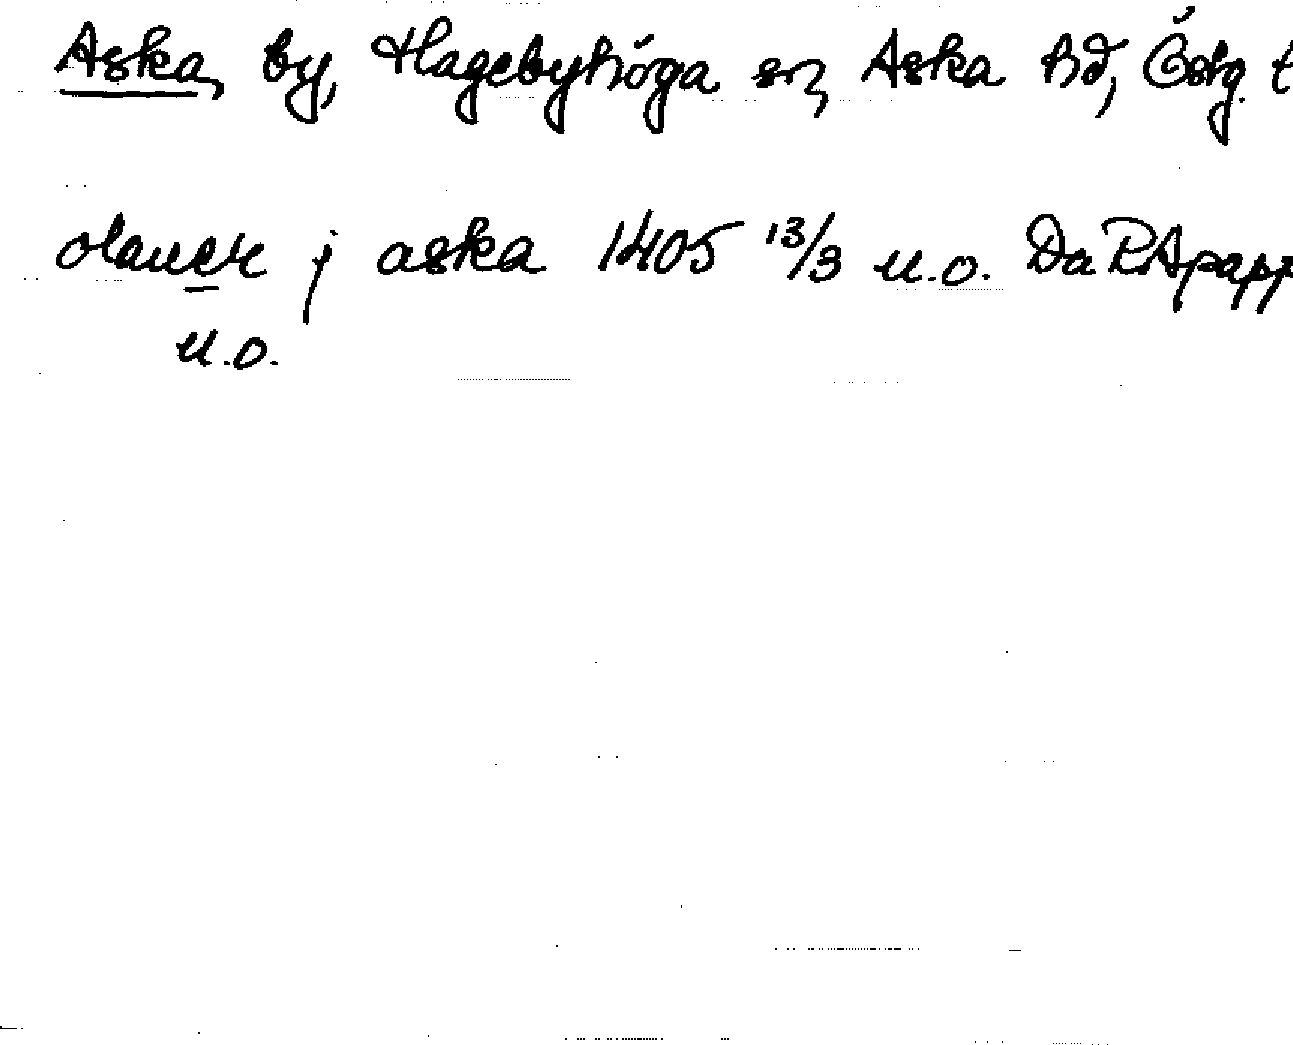 Aska, by, Hagebyhöga sn, Aska hd, Östg. t
olauer j aska 1405 13/3 u.o. Da RApapp
u.o.